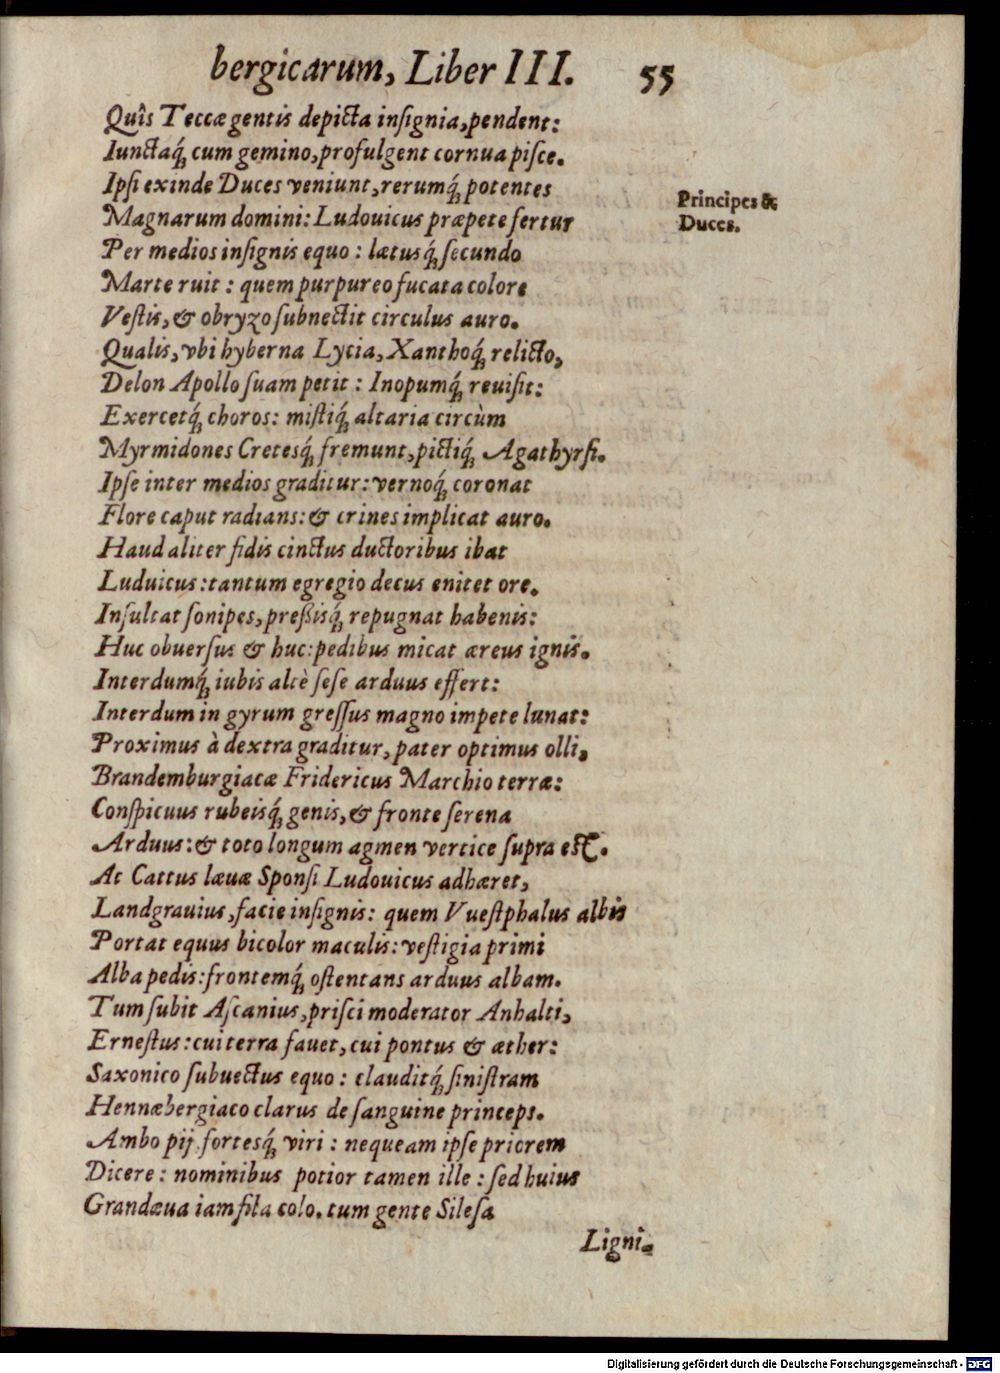 bergicarum, Liber III. 55
Quîs Teccæ gentis depicta insignia, pendent:
Iunctaq́; cum gemino, profulgent cornua pisce.
Ipsi exinde Duces veniunt, rerumq́; potentes
Principes &
Magnarum domini: Ludouicus præpete fertur
Duces.
Per medios insignis equo: lætusq́; secundo
Marte ruit: quem purpureo fucata colore
Vestis, & obryzo subnectit circulus auro.
Qualis, vbi hyberna Lycia, Xanthoq́; relicto,
Delon Apollo suam petit: Inopumq́; reuisit:
Exercetq́; choros: mistiq́; altaria circùm
Myrmidones Cretesq́; fremunt, pictiq́; Agathyrsi.
Ipse inter medios graditur: vernoq́; coronat
Flore caput radians: & crines implicat auro.
Haud aliter fidis cinctus ductoribus ibat
Luduicus: tantum egregio decus enitet ore.
Insultat sonipes, preßisq́; repugnat habenis:
Huc obuersus & huc: pedibus micat æreus ignis.
Interdumq́; iubis altè sese arduus effert:
Interdum in gyrum gressus magno impete lunat:
Proximus à dextra graditur, pater optimus olli,
Brandemburgiacæ Fridericus Marchio terræ:
Conspicuus rubeisq́; genis, & fronte serena
Arduus: & toto longum agmen vertice supra est.
At Cattus læuæ Sponsi Ludouicus adhæret,
Landgrauius, facie insignis: quem Vuestphalus albis
Portat equus bicolor maculis: vestigia primi
Alba pedis: frontemq́; ostentans arduus albam.
Tum subit Ascanius, prisci moderator Anhalti,
Ernestus: cui terra fauet, cui pontus & æther:
Saxonico subuectus equo: clauditq́; sinistram
Hennæbergiaco clarus de sanguine princeps.
Ambo pij fortesq́; viri: nequeam ipse priorem
Dicere: nominibus potior tamen ille: sed huius
Grandæua iam fila colo. tum gente Silesa
Ligni-
Digitalisierung gefördert durch die Deutsche Forschungsgemeinschaft - DFG